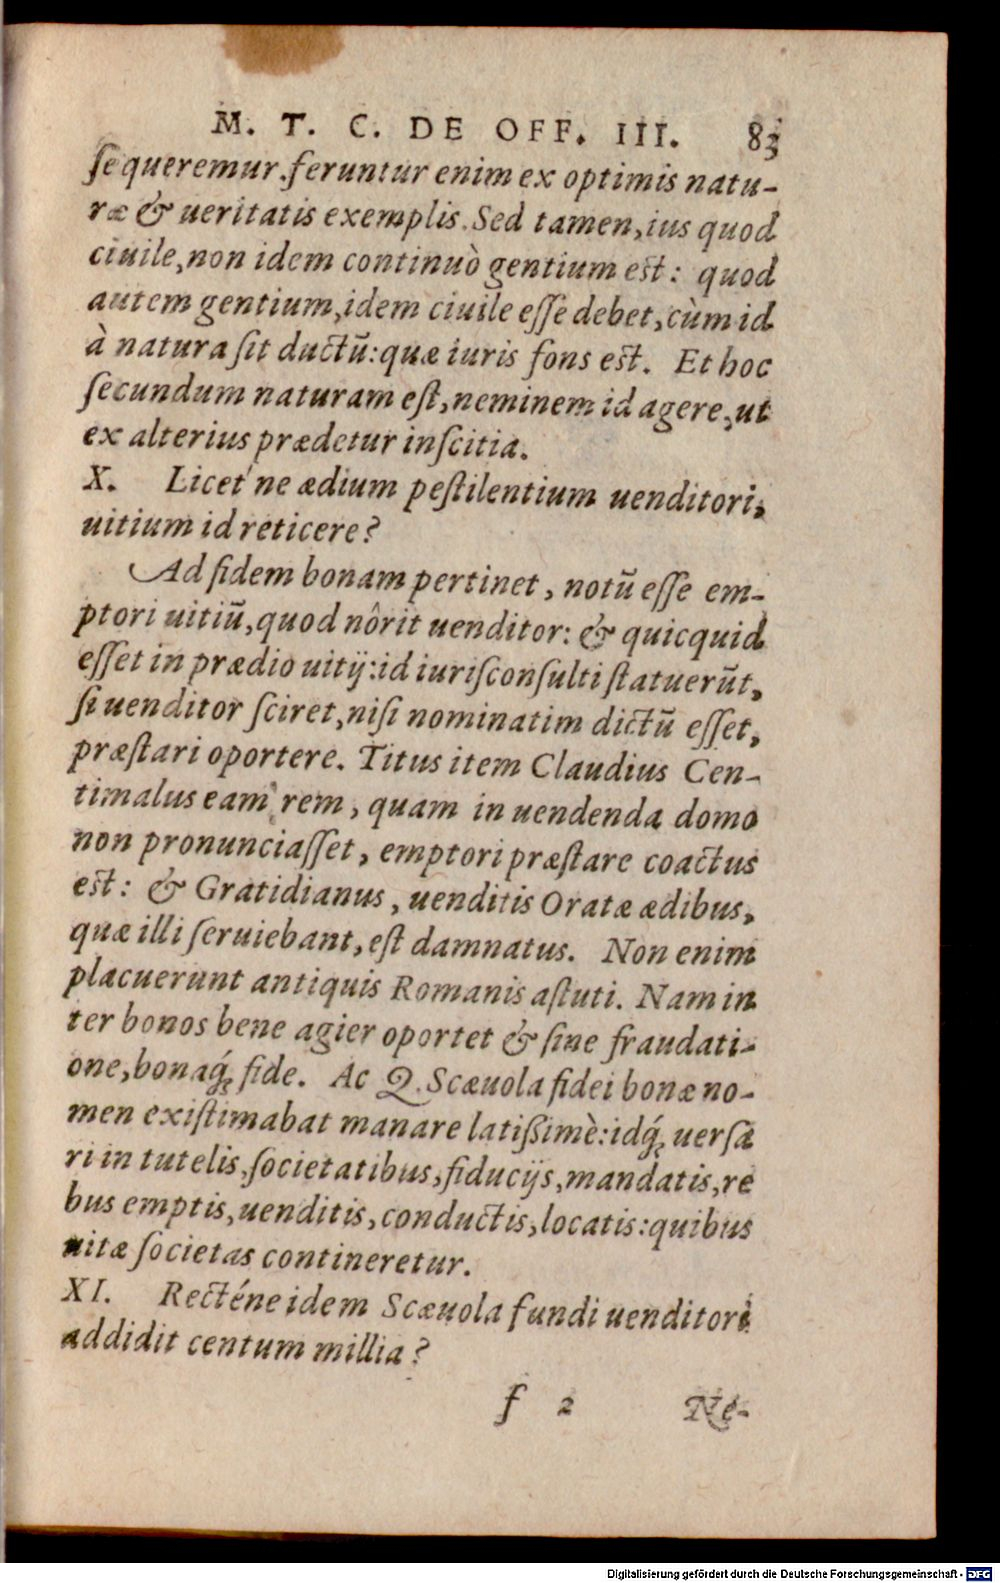 M. T. C. DE OFF. III. 83
sequeremur. feruntur enim ex optimis natu-
ræ & ueritatis exemplis. Sed tamen, ius quod
ciuile, non idem continuò gentium est: quod
autem gentium, idem ciuile esse debet, cùm id
à natura sit ductũ: quæ iuris fons est. Et hoc
secundum naturam est, neminem id agere, ut
ex alterius prædetur inscitia.
X. Licet'ne ædium pestilentium uenditori,
uitium id reticere?
Ad fidem bonam pertinet, notũ esse em-
ptori uitiũ, quod nôrit uenditor: & quicquid
esset in prædio uitij: id iurisconsulti statuerũt,
si uenditor sciret, nisi nominatim dictũ esset,
præstari oportere. Titus item Claudius Cen-
timalus eam rem, quam in uendenda domo
non pronunciasset, emptori præstare coactus
est: & Gratidianus, uenditis Oratæ ædibus,
quæ illi seruiebant, est damnatus. Non enim
placuerunt antiquis Romanis astuti. Nam in
ter bonos bene agier oportet & sine fraudati-
one, bonaq́ꝫ fide. Ac Q. Scæuola fidei bonæ no-
men existimabat manare latißimè: idq́ꝫ uersa
ri in tutelis, societatibus, fiducijs, mandatis, re
bus emptis, uenditis, conductis, locatis: quibus
uitæ societas contineretur.
XI. Recténe idem Scæuola fundi uenditori
addidit centum millia?
f 2 Ne-
Digitalisierung gefördert durch die Deutsche Forschungsgemeinschaft - DFG